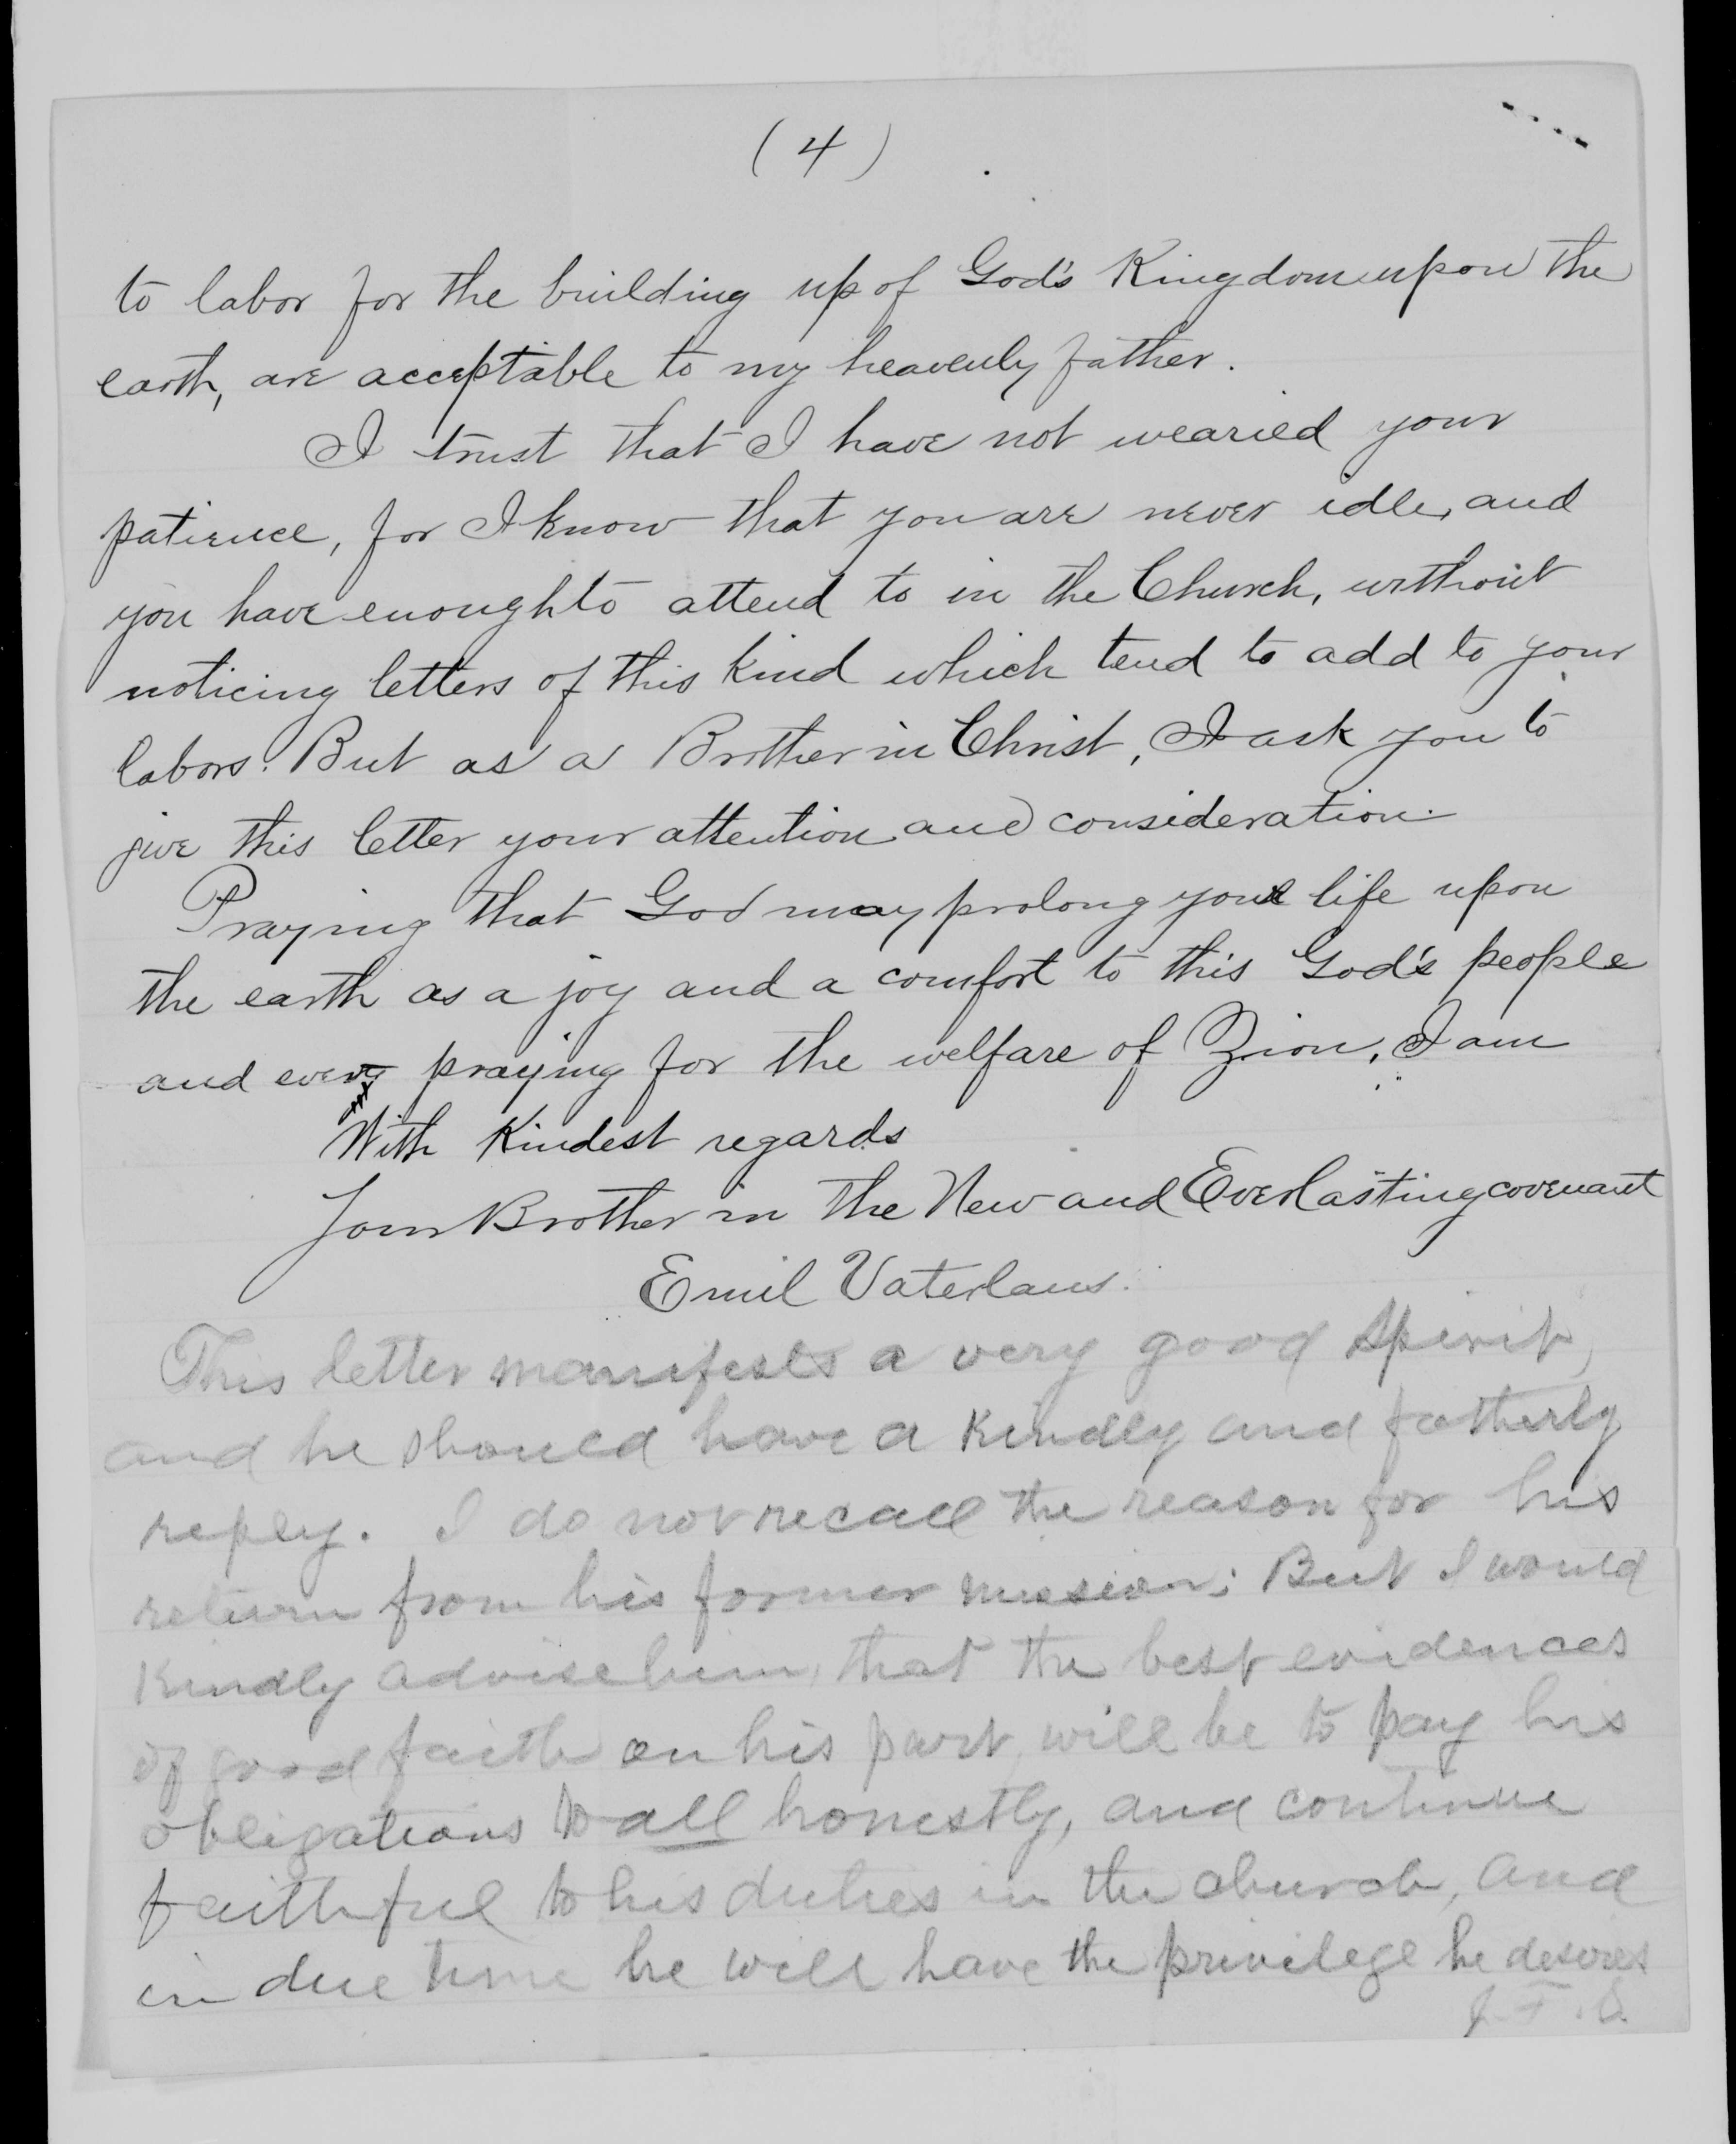 (4)
to labor for the building up of God's Kingdom upon the
earth, are acceptable to my heavenly father.
I trust that I have not wearied your
patience, for I know that you are never idle, and
you have enough to attend to in the Church, without
noticing letters of this kind which tend to add to your
labors. But as a Brother in Christ, I ask you to
give this letter your attention and consideration.
Praying that God may prolong your life upon
the earth as a joy and a comfort to this God's people
and ever praying for the welfare of Zion, I am
With Kindest regards
Your Brother in the New and Everlasting covenant
Emil Vaterlaus.
This letter manifests a very good spirit,
and he should have a kindly and fatherly
reply. I do not recall the reason for his
return from his former mission; But I would
kindly advise him, that the best evidences
of good faith on his part, will be to pay his
obligations to all honestly, and continue
faithful to his duties in the church, and
in due time he will have the privilege he desires
J. F. S.